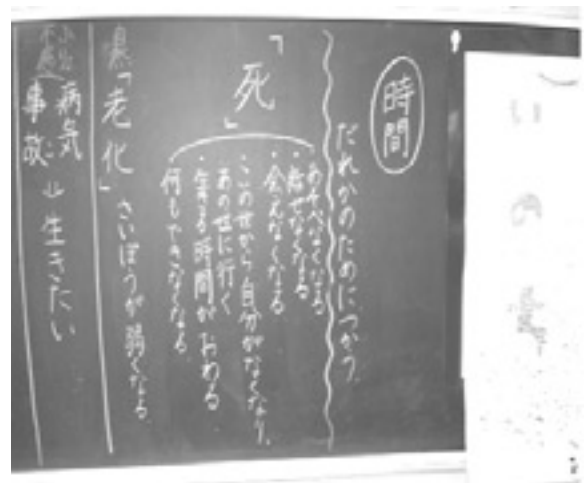 いの
時間
だれかのためにつかう。
「死」
あそべなくなる
・話せなくなる
・会えなくなる
・この世から自分がなくなり、
あの世に行く
・生きる時間がおわる
何もできなくなる
「老化」さいぼうが弱くなる
病気
事故
⇒生きたい